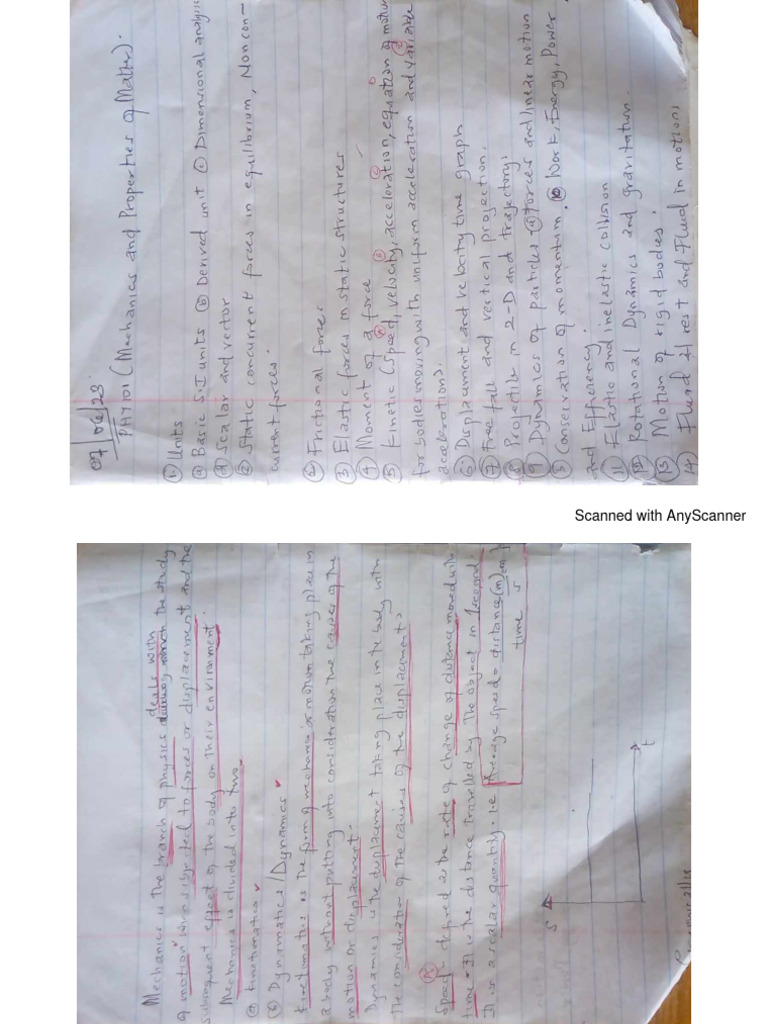 07/06/23
PHY101 (Mechanics and Properties of Matter).
① Units
ⓐ Basic S.I units ⓑ Derived unit ⓒ Dimensional analysis
ⓓ Scalar and vector
② Static concurrent forces in equilibrium, Noncon-
current forces.
② Frictional forces
③ Elastic forces in static structures
④ Moment of a force
⑤ Kinetic (speed, velocity, acceleration, equation of motion
for bodies moving with uniform acceleration and variable
acceleration).
⑥ Displacement and velocity time graph
⑦ Free fall and vertical projection.
⑧ Projectile in 2-D and trajectory.
⑨ Dynamics of particles ⓐ forces and linear motion
⑤ Conservation of momentum. ⑩ Work, Energy, Power
and Efficiency.
11 Elastic and inelastic collision
Rotational Dynamics and gravitation.
⑬ Motion of rigid bodies.
14 Fluid at rest and Fluid in motion
Scanned with AnyScanner
deals with
Mechanics is the branch of physics the study
of motion subjected to forces or displacement and the
subsequent effect of the body on their environment.
Mechanics is divided into two
ⓐ Kinetimatics
ⓑ Dynamatics/Dynamics
Kinetimatics is the form of mechanic motion taking place in
a body without putting into consideration the causes of the
motion or displacement.
Dynamics is the displacement taking place in the body with
the consideration of the causes of the displacement.
A
Speed - defined as the rate of change of distance moved with
time. It is the distance travelled by the object in 1 second.
It is a scalar quantity. i.e Average speed = distance (m)
time s
S
t